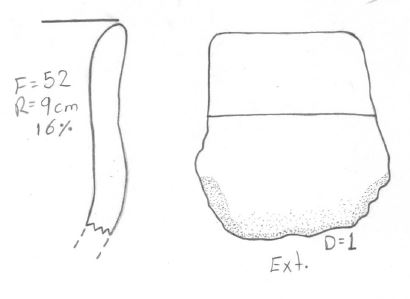 F=52
R=9cm
16%
D=1
Ext.